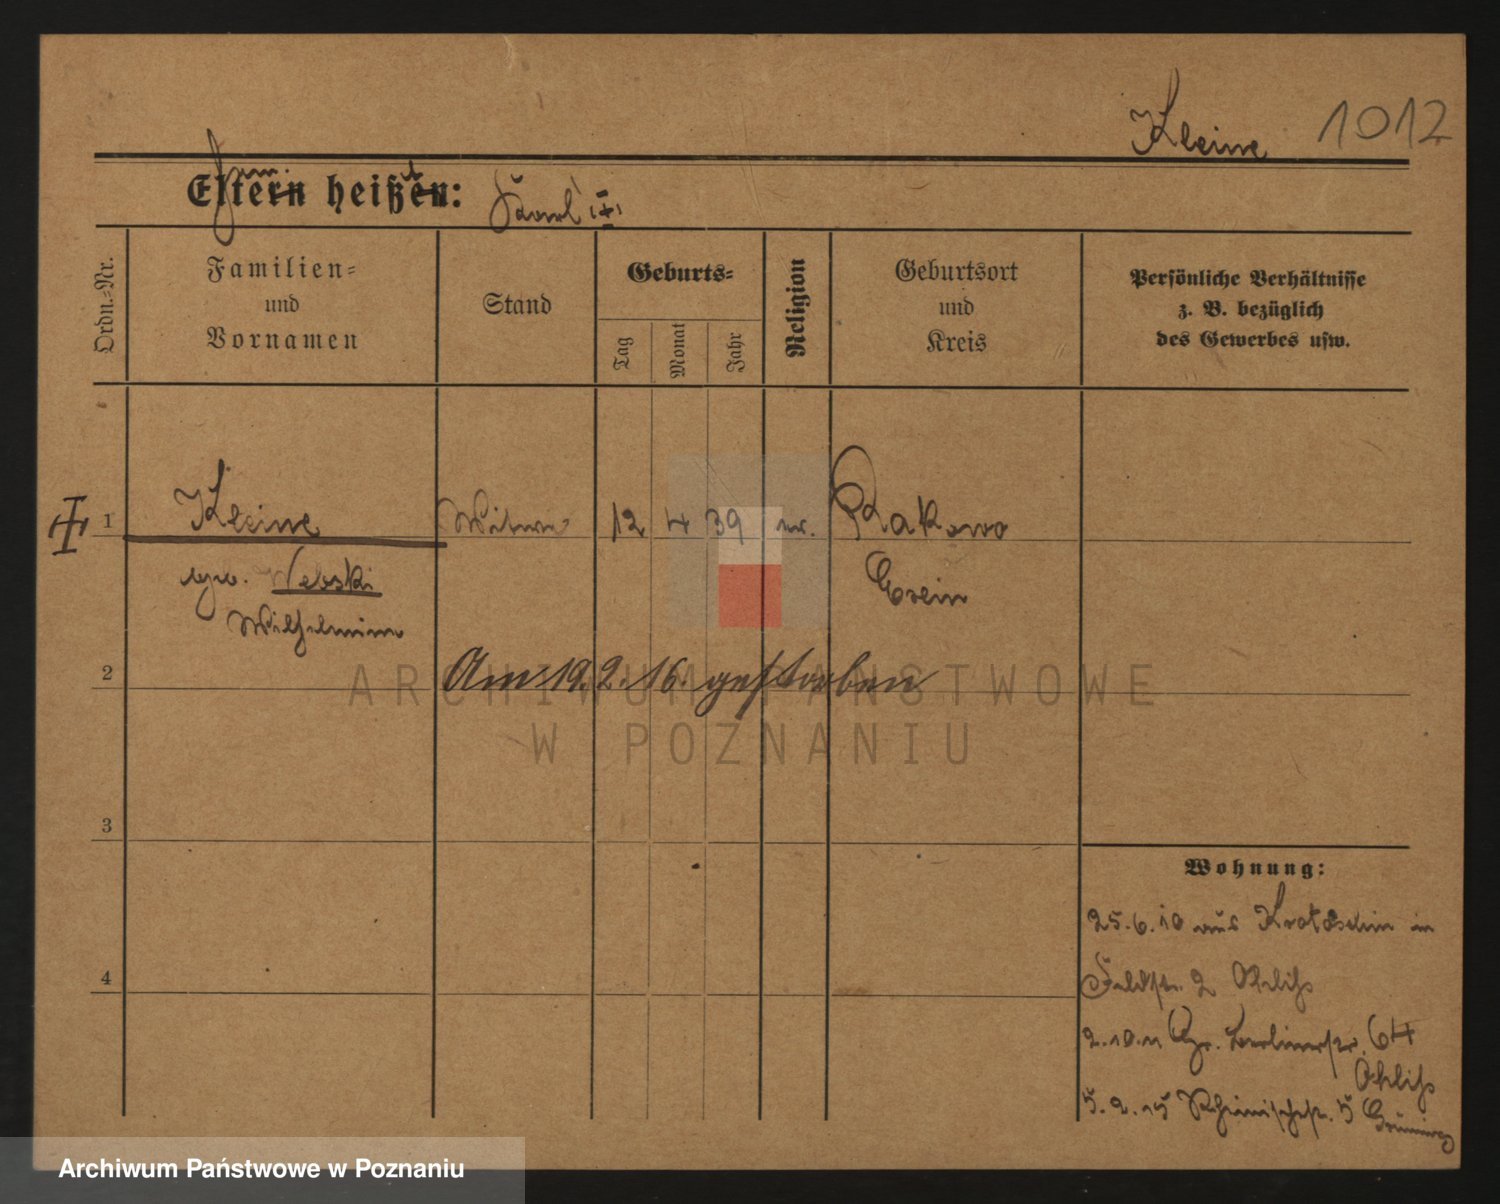 Kleine 1012
Eltern heißen: Karl
Ordn.-Nr.
Familien-
und
Vornamen
Stand
Geburts-
Tag
Monat
Jahr
Religion
Geburtsort
und
Kreis
Persönliche Verhältnisse
z. B. bezüglich
des Gewerbes usw.
1 Kleine Witwe 12 4 39 ev. Rakowo
Webski
Wilhelmine
2 Am 19.2.16. gestorben
3
4
Wohnung:
25.6.10 aus Krotoschin in
Feldstr. 2
2.10.11 Gr. Berlinerstr. 64
5.2.15 Rheinischestr. 5
ARCHIWUM PAŃSTWOWE
W POZNANIU
Archiwum Państwowe w Poznaniu